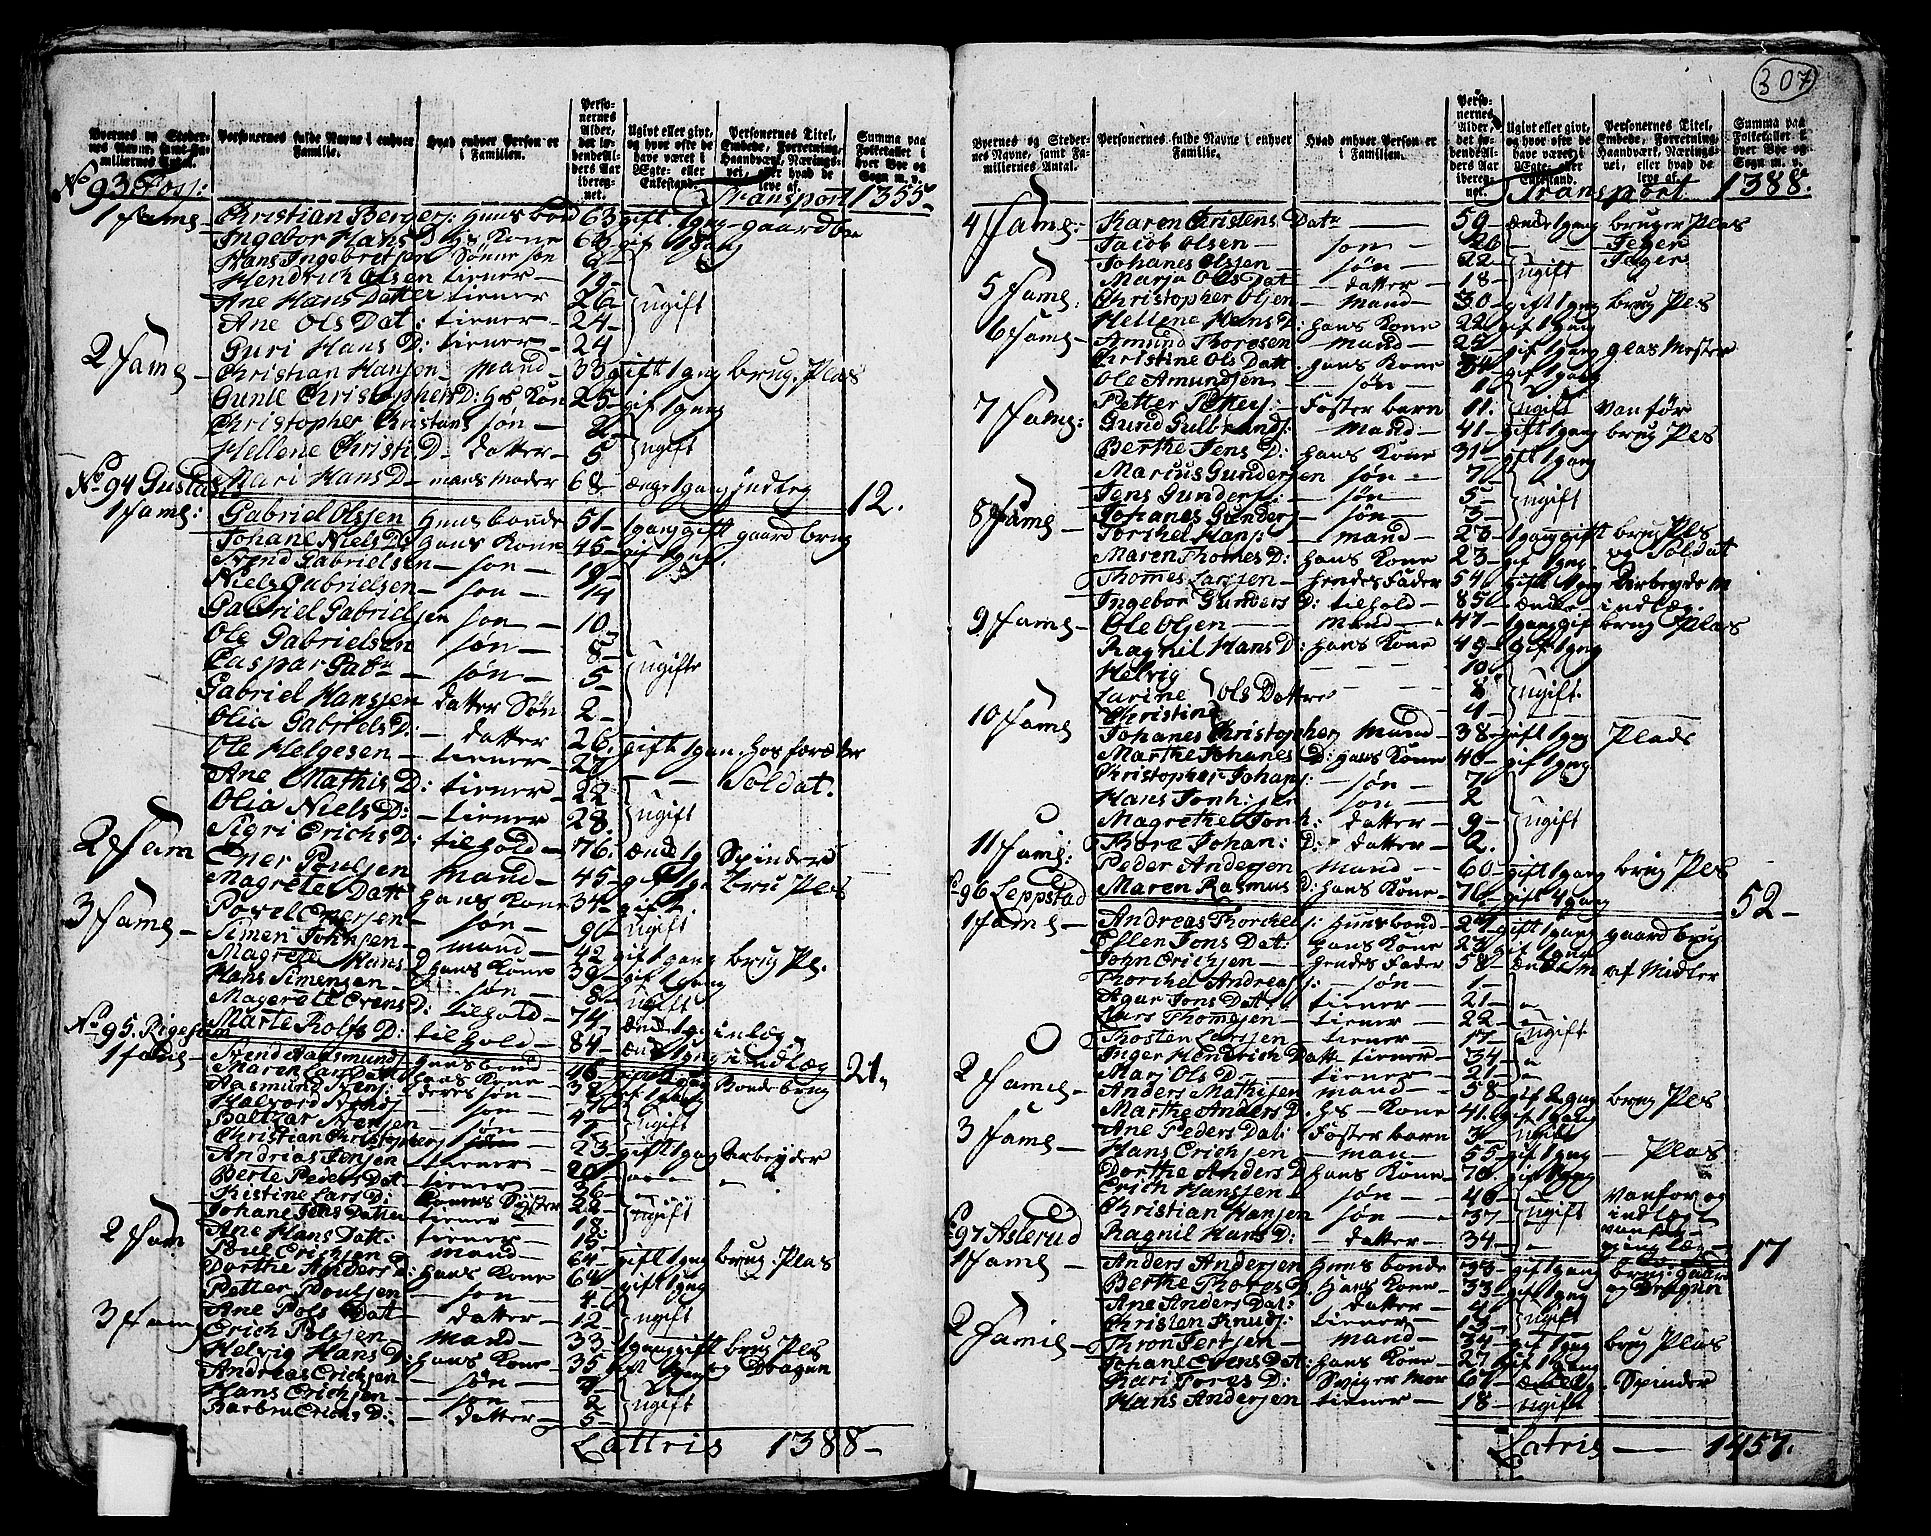 307
Byernes og Stedernes Navne, samt Familiernes Antal. Personernes fulde Navne i enhver Familie. Hvad enhver Person er i Familien. Personernes Alder, det løbendeAlders Aar iberegnet. Ugivt eller givt, og hvor ofte de have været i Egte- eller Enkestand. Personernes Titel, Embede, Forretning, Haandværk, Næringsvei, eller hvad de leve af. Summa paa Folketallet i hver Bye og Sogn m. v.
No 93 Foss: Transport 1355
1 fame Christian Berger: Huusbond 63 gift 1gang gaardbr
Ingebor Hans D hs Kone 64 gif 1gang
Hans Ingebretsen Sönne søn
Hendrich Olsen tiener 19
Ane Hans Datter tiener 26 ugift
Ane Ols Dat: tiener 24
Guri Hans D: tiener 24
2 fame Christian Hansen mand 33 gift 1gang brug. Plas
Gunle Christophers D: hs Kone 25 gif 1gang
Christopher Christans søn 2
Hellene Christi D datter 5 ugift
Mari Hans D mans moder 68 1gang indleg
No 94 Gustad 12.
1 fame: Gabriel Olssen Huusbonde 51 1gang gift gaardbrug
Johane Niels D: hans Kone 45 gif 1gang
Svend Gabrielsen søn 19
Niels Gabrielsen søn 14
Gabriel Gabrielsen søn 10
Ole Gabrielsen søn 8
Caspar Gab søn 5 ugifte
Gabriel Hanssen datter Søn 2
Olia Gabriels D: datter 26 gift 1gan. hos foræller
Ole Helgesen tiener 27 Soldat.
Ane Mathis D: tiener 22
Olia Niels D: tiener 28 ugift
Sigri Erichs D: tilhold 76 1g Spinder
2 Fam Ener Poulsen mand 45 gif 1g. bru Plas
Magrete Datt hans Kone 34 gift
Povel Enersen søn ugift
3 fame Simen Johnsen mand 42 gif 1gang brug Pl.
Magrete Hans D hans Kone 39 gif 1gang
Hans Simensen søn 8 ugift
Magerete Evens D: tilhold 74 1g. inleg
Marte Rolfs D: tilhold 84 1gang indlæg
No 95. Rigesum 21
1 fame Svend Aasmund: huusbond 46 gift 1gang Bondebrug
Maren Lars Datt hans Kone 38 gif 1gang
Aasmund Svens: deres søn
Halvord Svens søn 4
Baltzar Svensen søn 1 ugift
Christian Christophers 23 gift 1gang arbeyder
Andreas Jensen tiener 20
Berte Peders Dat tiener 36
Kistine Lars D: Konens Syster 22
Johane Jens Datter tiener 18 ugift
Ane Hans Dat: tiener 15
2 Fam Poul Erichsen mand 64 gift 1gang brug Plas
Dorthe Anders D: hans Kone 64 gift 1gang
Petter Poulsen søn 4
Ane Pols Dat datter 12 ugift
3 Fam Erich Polssen mand 33 1gang gift brug Ples
Helvig Hans D: hans Kone 35 gif 1gang og Dragun
Andreas Erichsen søn
Hans Erichsen søn 2 ugift
Barbru Erichs D: datter 5
Lattris 1388
Byernes og Stedernes Navne, samt Familiernes Antal. Personernes fulde Navne i enhver Familie. Hvad enhver Person er i Familien. Personernes Alder, det løbendeAlders Aar iberegnet. Ugivt eller givt, og hvor ofte de have været i Egte- eller Enkestand. Personernes Titel, Embede, Forretning, Haandværk, Næringsvei, eller hvad de leve af. Summa paa Folketallet i hver Bye og Sogn m. v.
Transport 1388
4 fame: Karen Cristens Datr 59 ænde 1gang bruger Plas
Jacob Olsen søn 26 Jeger
Johanes Olssen søn 22 ugift Jeger
Marja Ols Dat datter 18
5 fame: Christopher Olsen mand 30 gift 1gang brug Ples
Hellene Hans D: hans Kone 22 gif 1gang
6 fame Amund Thoresen mand 25 gif 1gang glas Mester
Christine Ols Datt hans Kone 34 gif 1gang
Ole Amundsen søn 1
Petter Petters: Foster barn 11. ugift vanfør
7 fame: Gund Gulbrands: mand 41 gift 1gang brug Ples
Berthe Jens D: hans Kone 31 gift 1gang
Marius Gundersen søn 7
Jens Gunders: søn 5 ugift
Johanes Gunders søn 3
8 Fame Torshel Hans: mand 23 1gang gift brug Ples
Maren Thomes D: hans Kone 23 gif 1gng og Soldat
Thomes Larssen hendes Fader 54 gift 1gang Arbeyde m
Ingebor Gunders D: tilhold 85 ænde indlæg.
9 fame Ole Olsen mand 47 1gang gif brug Plas
Ragnil Hans D: hans Kone 49 gif 1gng
Helvig 10
Larine Ols Datre 8 ugift
Christine 4
10 fame Johanes Christophers mand 38 gift 1gng Plads
Marthe Johanes D: hans Kone 40 gif 1gng
Christopher Johans: søn 7
Hans Jonh:sen søn 2
Magrethe Jonh: datter 9 ugift
Thore Johan: D: datter 2.
11 fame: Peder Andersen mand 60 gift 1gang brug Ples
Maren Rasmus D: hans Kone 76 gift 4gang
96 Leppstad 52
1 fame Andreas Thorchels: huusbond 27 gift 1gang gaardbrug
Ellen Jons Dat: hans Kone 23 gif 1gang
John Erichsen hendes Fader 58 Ænkem af Midler
Thorchel Andreas: søn 1
Agar Jons Dat tiener 21
Lars Thomesen tiener 22
Thosten Larssen tiener 17 ugift
Inger Hendrich Datt tiener 34
Mari Ols D: tiener 21
2 fame Anders Mathisen mand 58 gif 2gng brug Ples
Marthe Anders D. hs Kone 41 gif 1gang
Ane Peders Dat: Foster barn ugift
3 fame Hans Erichsen man 55 gif 1gng Plas
Dorthe Anders D hans Kone 70 gif 1gng
Erich Hanssen søn 40 vanfør og
Christian Hansen søn 37 ugift indleg
Ragnil Hans D: datter 34
97 Aslerud 17
1 fame Anders Andersen huusbonde 33 gift 1gang brug: gaar
Berthe Thores D. hans Kone 33 gift 1gng og Dragun
Ane Anders Dat: datter 4
Christen Knuds: tiener 13 ugift
2 Famie Thron Jertsen mand 34 gif 1gng brug Plas
Johane Evens Dat: hans Kone 27 gif 1gang
Kari Tores D: Sviger Mor 67 Spinder
Hans Andersen tiener 18 ugift
Latris 1457.